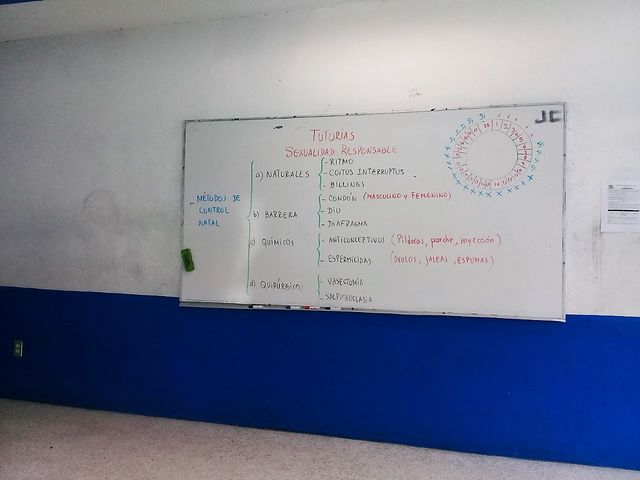 JC
TUTORIAS
SEXUALIDAD RESPONSABLE
MÉTODOS DE
CONTROL
NATAL
a) NATURALES
- RITMO
- COITUS INTERRUPTUS
- BILLINGS
b) BARRERA
- CONDÓN (MASCULINO y FEMENINO)
- DIU
- DIAFRAGMA
c) QUÍMICOS
- ANTICONCEPTIVOS (Píldoras, parche, inyección)
- ESPERMICIDAS (ÓVULOS, JALEAS, ESPUMAS)
d) QUIRÚRGICO
- VASECTOMÍA
- SALPINGOCLASIA